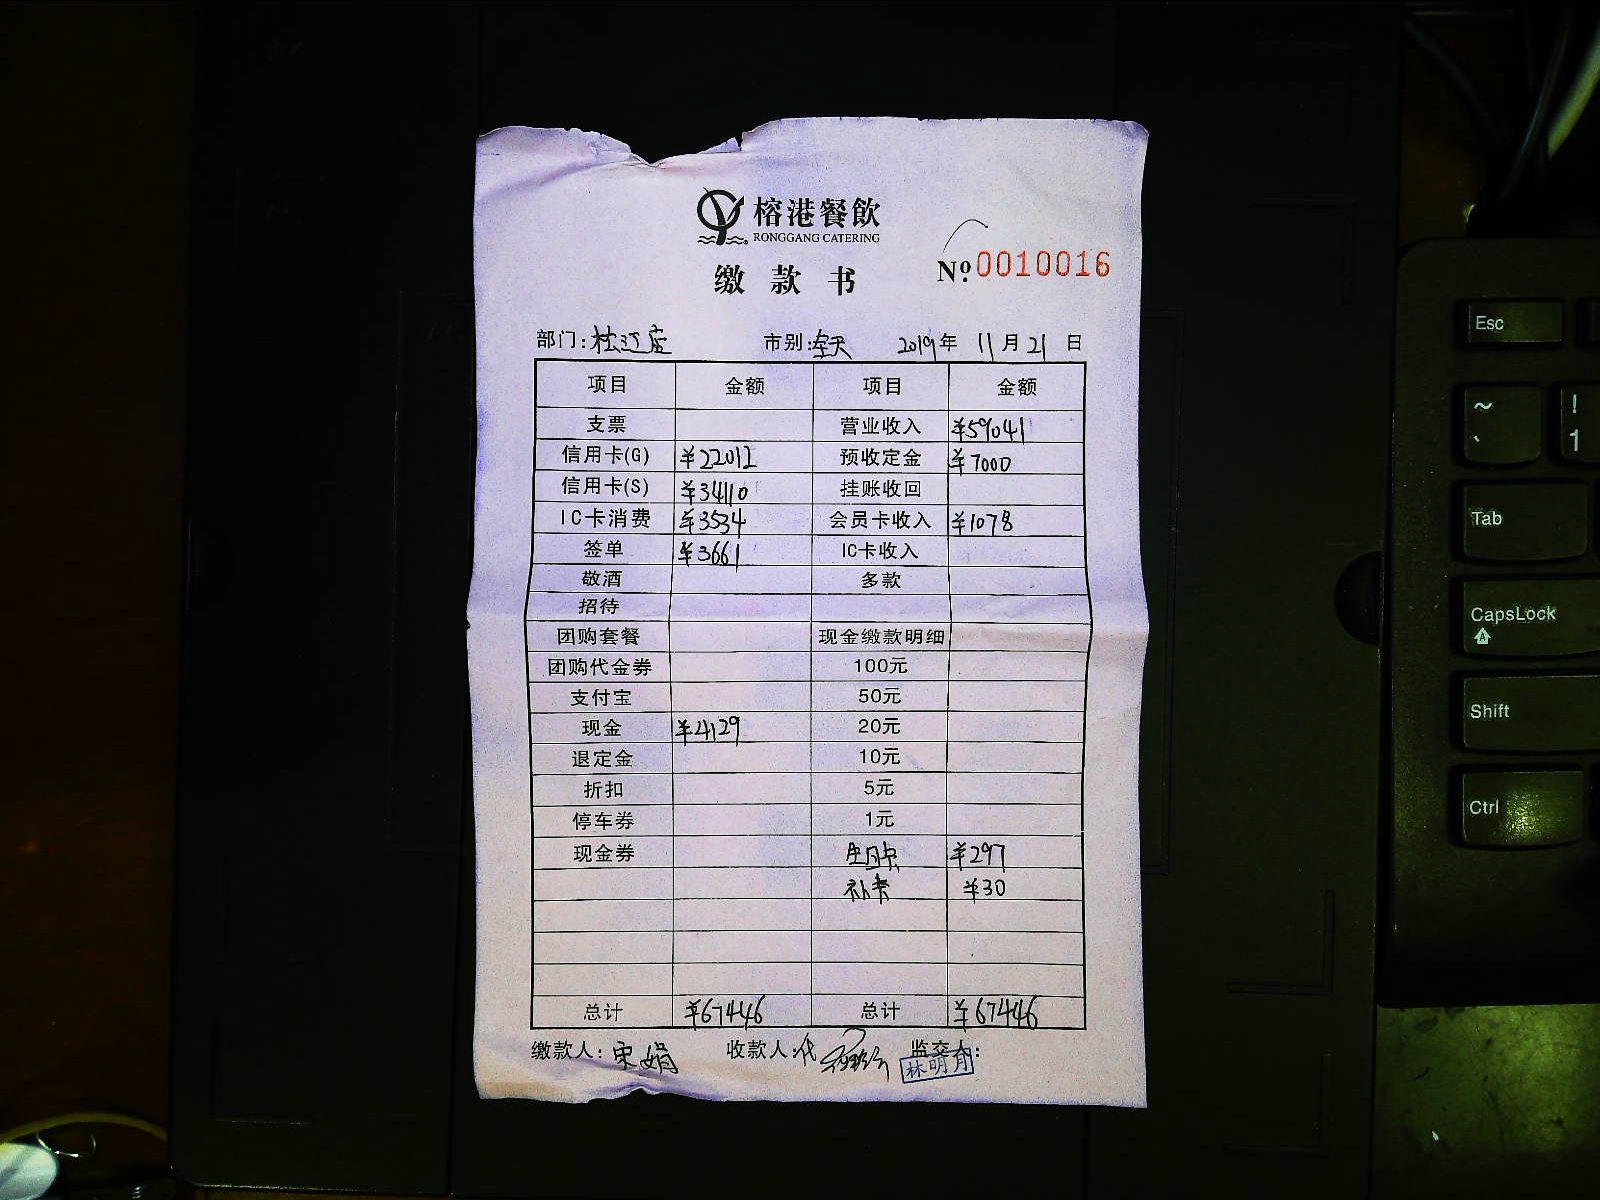 榕港餐飲
RONGGANG CATERING
缴款书
№0010016
部门: 松江店 市别: 全天 2019年 11月 21日
项目 金额 项目 金额
支票 营业收入 ¥59041
信用卡(G) ¥22012 预收定金 ¥7000
信用卡(S) ¥34110 挂账收回
IC卡消费 ¥3534 会员卡收入 ¥1078
签单 ¥3661 IC卡收入
敬酒 多款
招待
团购套餐 现金缴款明细
团购代金券 100元
支付宝 50元
现金 ¥4129 20元
退定金 10元
折扣 5元
停车券 1元
现金券 ¥297
补卡 ¥30
总计 ¥67446 总计 ¥67446
缴款人: 宋娟 收款人: 代 监交人:
林明月
Esc
~ ` ! 1
Tab
CapsLock
Shift
Ctrl